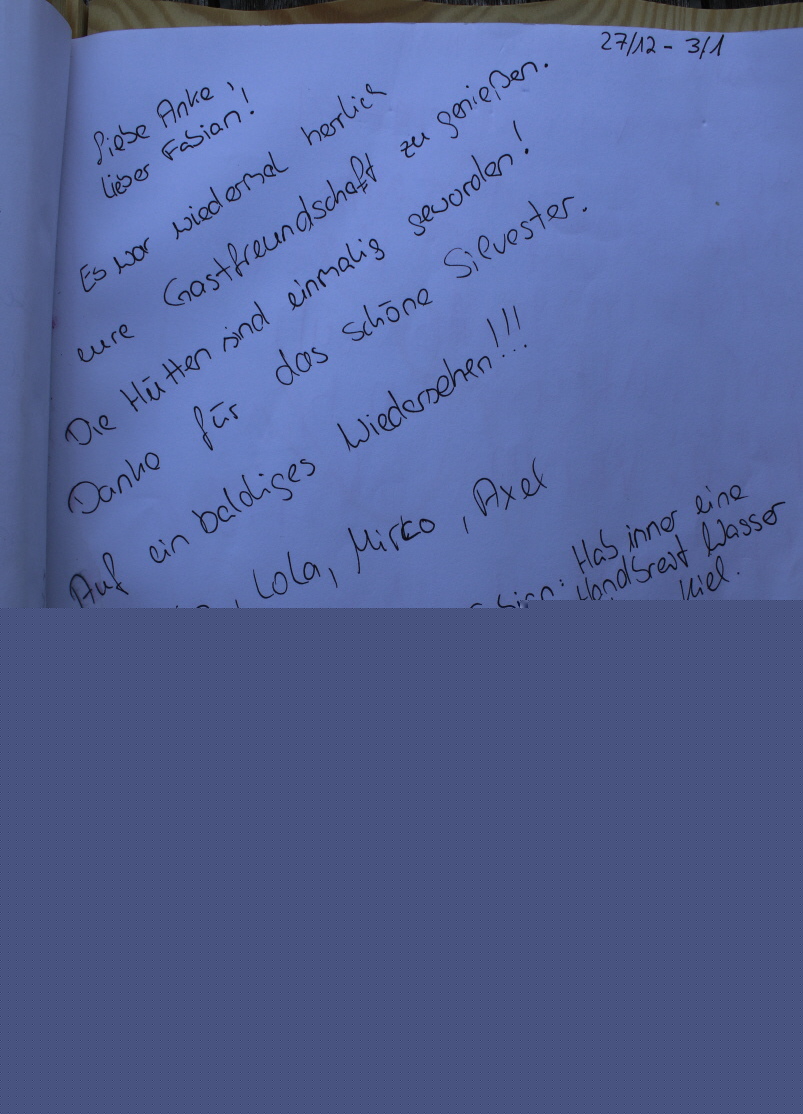 27/12 - 3/1
Liebe Anke,
lieber Fabian!
Es war wiedermal herrlich
eure Gastfreundschaft zu genießen.
Die Hütten sind einmalig geworden!
Danke für das schöne Silvester.
Auf ein baldiges Wiedersehen!!!
, Lola, Mirko, Axel
Hab immer eine
Handbreit Wasser
Kiel.